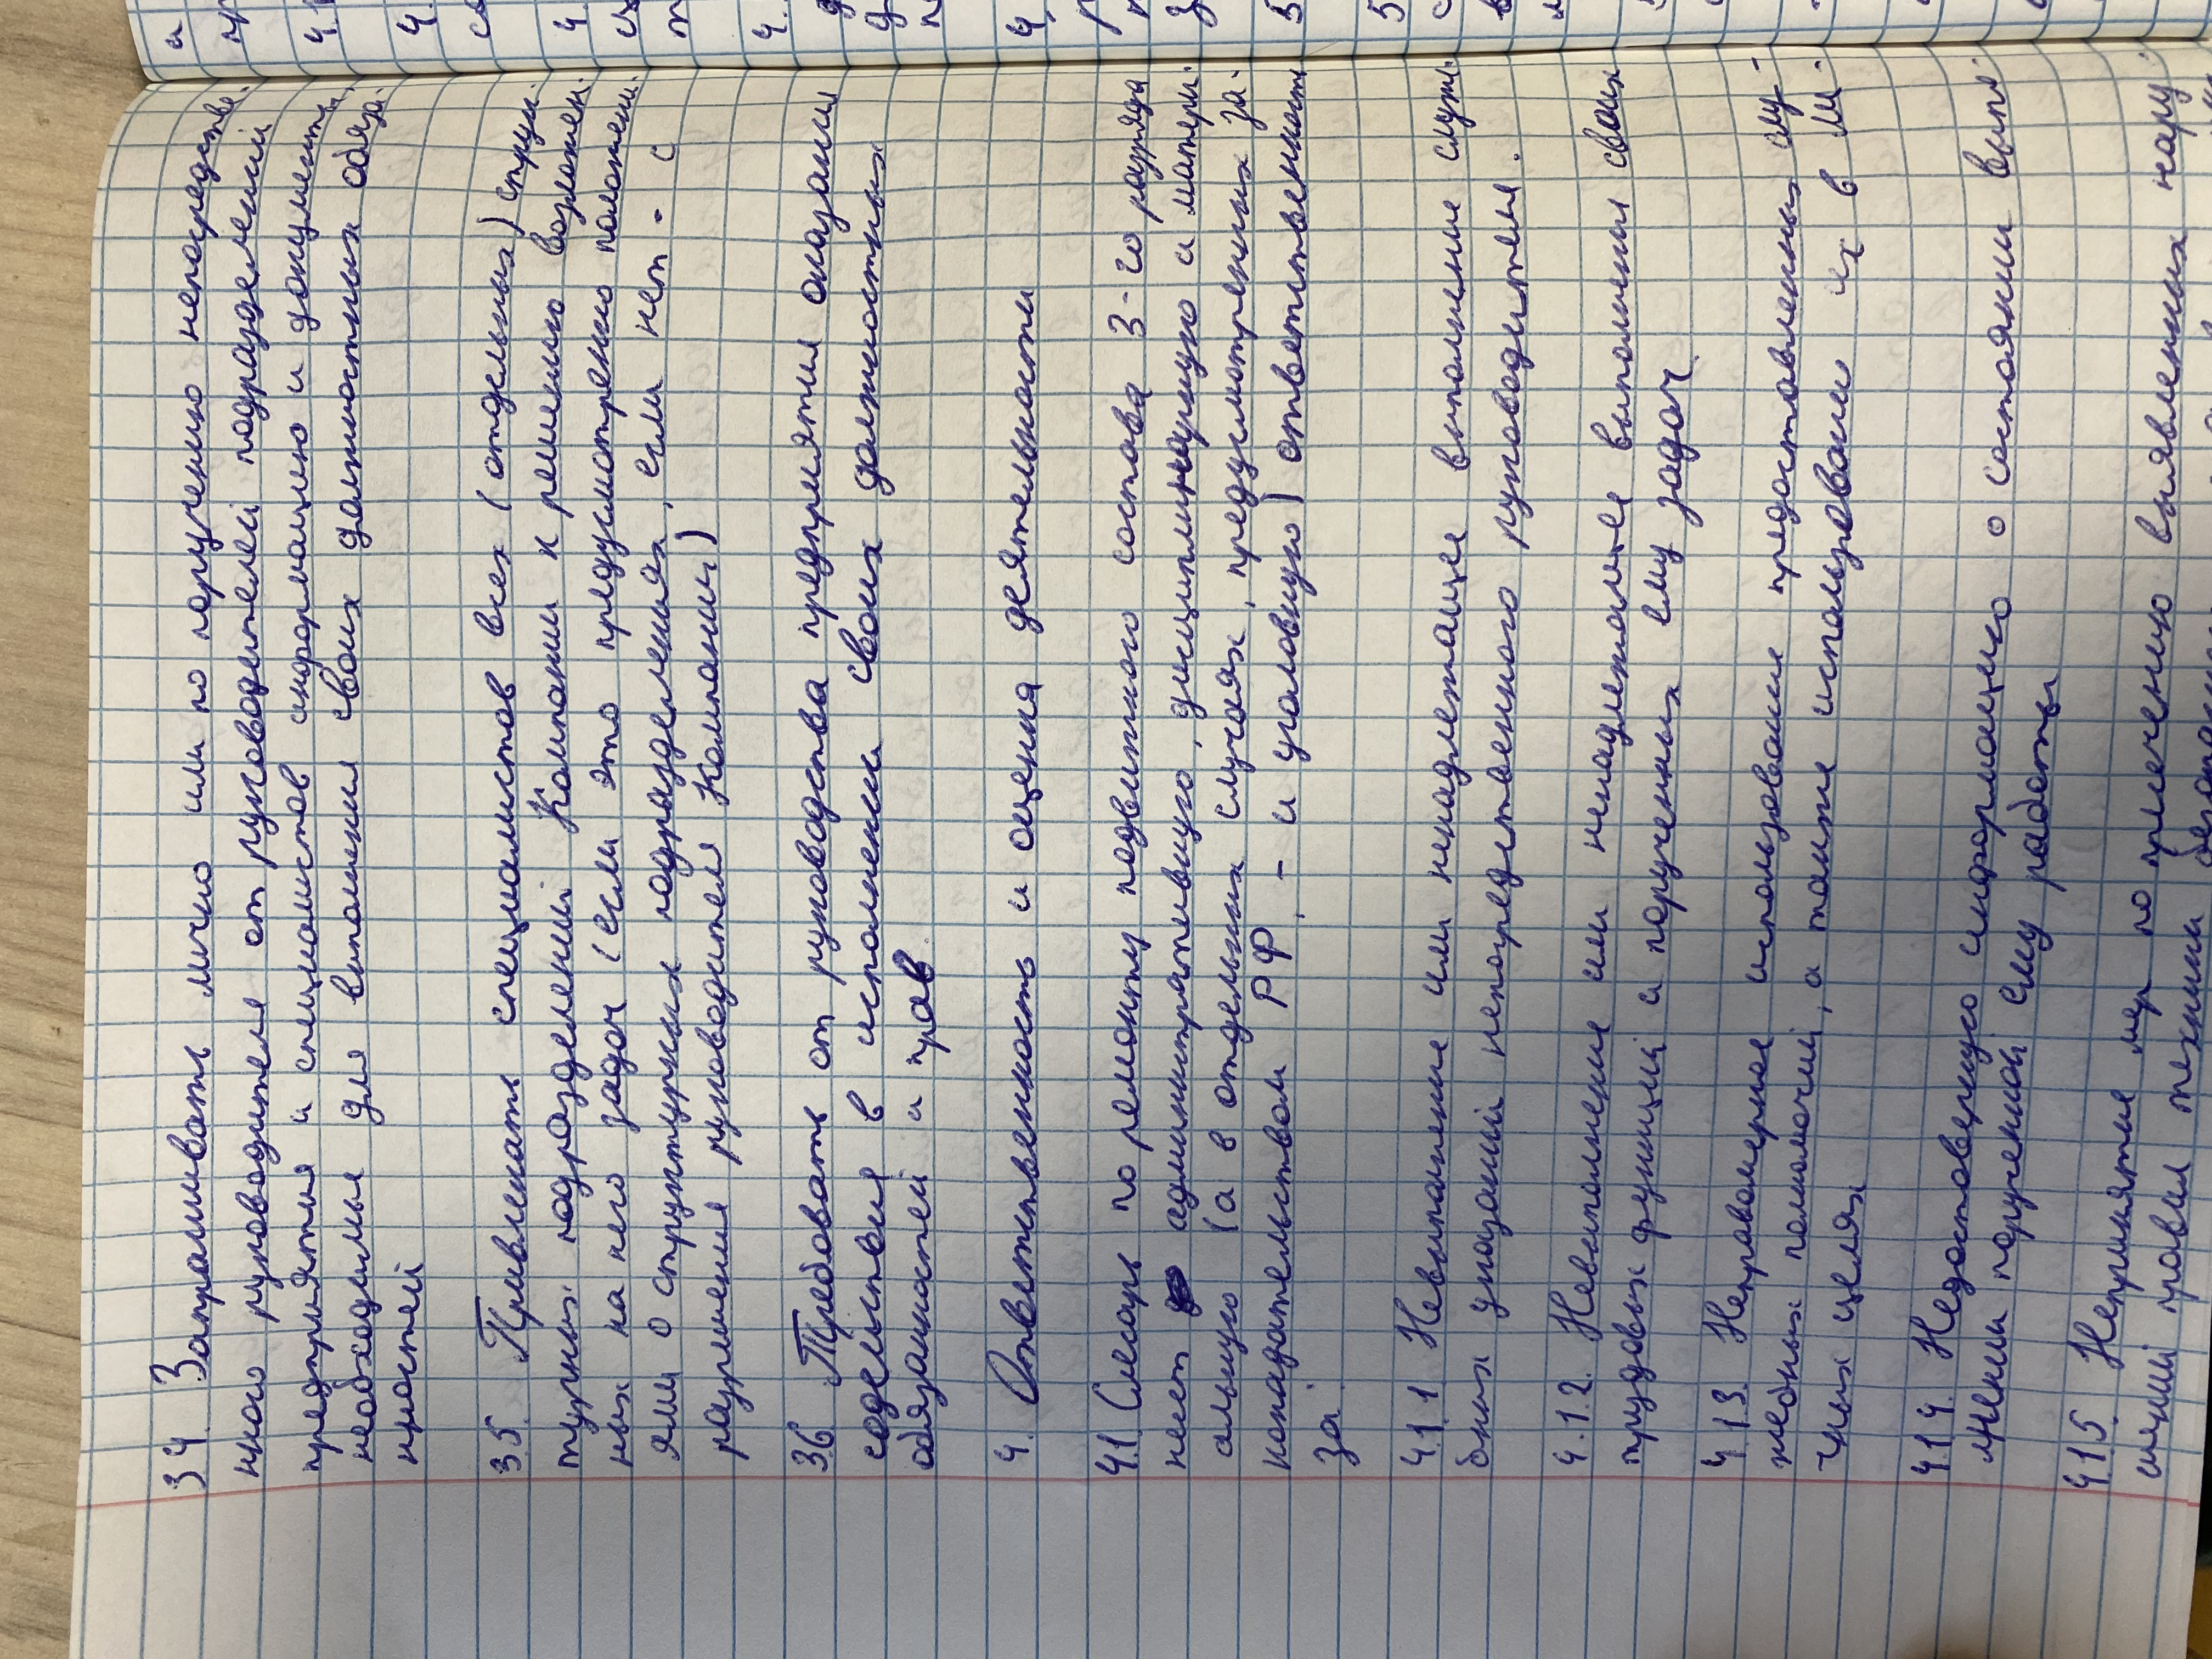 3.4. Запрашивать лично или по поручению непосредстве-
нного руководителя от руководителей подразделений
предприятия и специалистов информацию и документы,
необходимые для выполнения своих должностных обяза-
нностей
3.5. Привлекать специалистов всех (отдельных) струк-
турных подразделений Компании к решению возложен-
ных на него задач (если это предусмотрено положени-
ями о структурных подразделениях, если нет - с
разрешения руководителя Компании)
3.6 Требовать от руководства предприятия оказания
содействия в исполнении своих должностных
обязанностей и прав.
4. Ответственность и оценка деятельности
4.1. Слесарь по ремонту подвижного состава 3-го разряда
несет административную, дисциплинарную и матери-
альную (а в отдельных случаях, предусмотренных за-
конодательством РФ, - и уголовную) ответственность
за:
4.1.1 Невыполнение или ненадлежащее выполнение служе-
бных указаний непосредственного руководителя.
4.1.2. Невыполнение или ненадлежащее выполнения своих
трудовых функций и порученных ему задач
4.1.3. Неправомерное использование предоставленных слу-
жебных полномочий, а также использование их в ли-
чных целях
4.1.4. Недостоверную информацию о состоянии выпо-
лнении порученной ему работы
4.1.5 Непринятие мер по пресечению выявленных нару-
шений правил техники